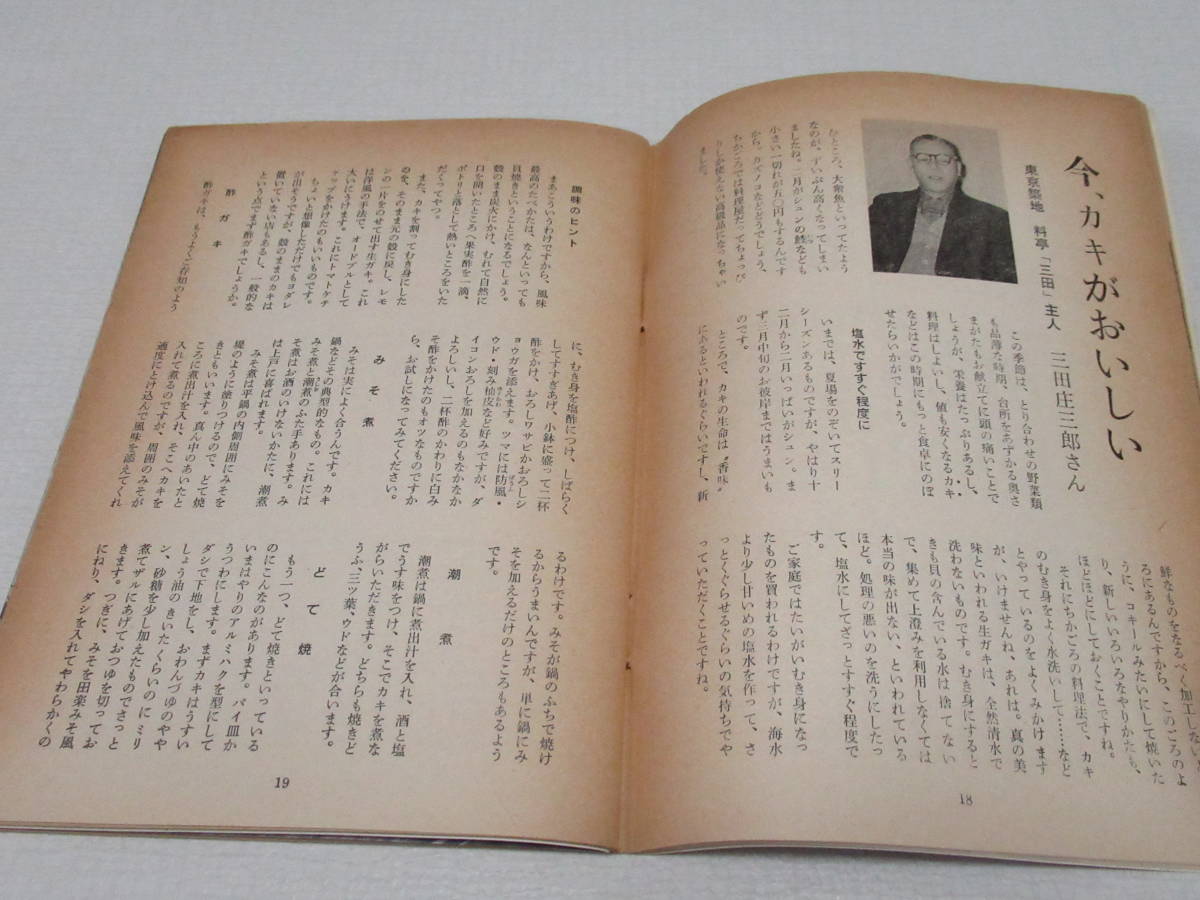 今、カキがおいしい
東京築地　料亭「三田」主人
三田庄三郎さん
この季節は、とり合わせの野菜類
も品薄な時期、台所をあずかる奥さ
まがたもお献立てに頭の痛いことで
しょうが、栄養はたっぷりあるし、
料理はしよいし、値も安くなるカキ
などはこの時期にもっと食卓にのぼ
せたらいかがでしょう。
ひところ、大衆魚といってたよう
なのが、ずいぶん高くなってしまい
ましたね。二月がシュンの鱈なども
小さい一切れが五〇円もするんです
から。カズノコなどどうでしょう、
ちかごろでは料理屋だってちょっぴ
りしか使えない高級品になっちゃい
ました。
塩水ですすぐ程度に
いまでは、夏場をのぞいてスリー
シーズンあるものですが、やはり十
二月から二月いっぱいがシュン。ま
ず三月中旬のお彼岸まではうまいも
のです。
ところで、カキの生命は〝香味〟
にあるといわれるぐらいですし、新
鮮なものをなるべく加工しない
ろにあるんですから、このごろのよ
うに、コキールみたいにして焼いた
り、新しいいろいろなやりかたも、
ほどほどにしておくことですね。
それにちかごろの料理法で、カキ
のむき身をよく水洗いして……など
とやっているのをよくみかけます
が、いけませんね、あれは。真の美
味といわれる生ガキは、全然清水で
洗わないものです。むき身にすると
きも貝の含んでいる水は捨てない
で、集めて上澄みを利用しなくては
本当の味が出ない、といわれている
ほど。処理の悪いのを洗うにしたっ
て、塩水にしてざっとすすぐ程度で
す。
ご家庭ではたいがいむき身になっ
たものを買われるわけですが、海水
より少し甘いめの塩水を作って、さ
っとくぐらせるぐらいの気持ちでや
っていただくことですね。
18
調味のヒント
まあこういうわけですから、風味
最高のたべかたは、なんといっても
貝焼きということになるでしょう。
殻のまま炭火にかけ、むれて自然に
口を開いたところへ果実酢を一滴、
ポトリと落として熱いところをいた
だくってやつ。
また、カキを割ってむき身にした
のを、そのまま元の殻に戻し、レモ
ンの一片をのせて出す生ガキ。これ
は洋風の手法で、オードブルとして
大いにうけます。これにトマトケチ
ャップをかけたのもいいものです。
ちょいと想像しただけでもヨダレ
が出そうですが、殻のままのカキは
置いていない店もあるし、一般的な
という点でまず酢ガキでしょうか。
酢ガキ
酢ガキは、もうよくご存知のよう
に、むき身を塩酢につけ、しばらく
してすすぎあげ、小鉢に盛って二杯
酢をかけ、おろしワサビかおろしシ
ョウガを添えます。ツマには防風・
ウド・刻み柚皮など好みですが、ダ
イコンおろしを加えるのもなかなか
よろしいし、二杯酢のかわりに白み
そ酢をかけたのもオツなものですか
ら、お試しになってみてください。
みそ煮
みそは実によく合うんです。カキ
鍋などその典型的なもの。これには
みそ煮と潮煮のふた手あります。み
そ煮はお酒のいけないかたに、潮煮
は上戸に喜ばれます。
みそ煮は平鍋の内側周囲にみそを
堤のように塗りつけるので、どて焼
きともいいます。真ん中のあいたと
ころに煮出汁を入れ、そこへカキを
入れて煮るのですが、周囲のみそが
適度にとけ込んで風味を添えてくれ
るわけです。みそが鍋のふちで焼け
るからうまいんですが、単に鍋にみ
そを加えるだけのところもあるよう
です。
潮煮
潮煮は鍋に煮出汁を入れ、酒と塩
でうす味をつけ、そこでカキを煮な
がらいただきます。どちらも焼きど
うふ、三ツ葉、ウドなどが合います。
どて焼
もう一つ、どて焼きといっている
のにこんなのがあります。パイ皿か
いまはやりのアルミハクを型にして
うつわにします。まずカキはうすい
ダシで下地をし、おわんづゆのやや
しょう油のきいたくらいのにミリ
ン、砂糖を少し加えたものでさっと
煮てザルにあげておつゆを切ってお
きます。つぎに、みそを田楽みそ風
にねり、ダシを入れてやわらかくの
19